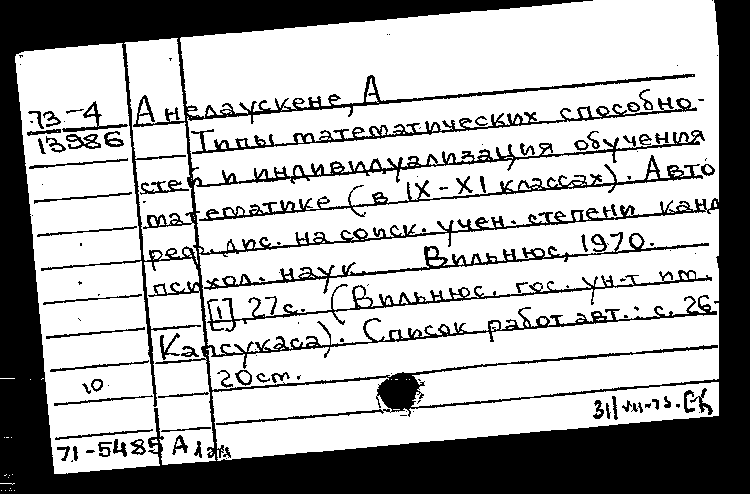 73-4 Анелаускене, А
13986 Типы математических способно-
стей и индивидуализация обучения
математике (в IX-XI классах). Авто
реф. дис. на соиск. учен. степени канд
психол. наук. Вильнюс, 1970.
[1], 27с. (Вильнюс. гос. ун-т им.
Капсукаса). Список работ авт.: с. 26-
10 20см.
31/VIII-73.
71-5485 А